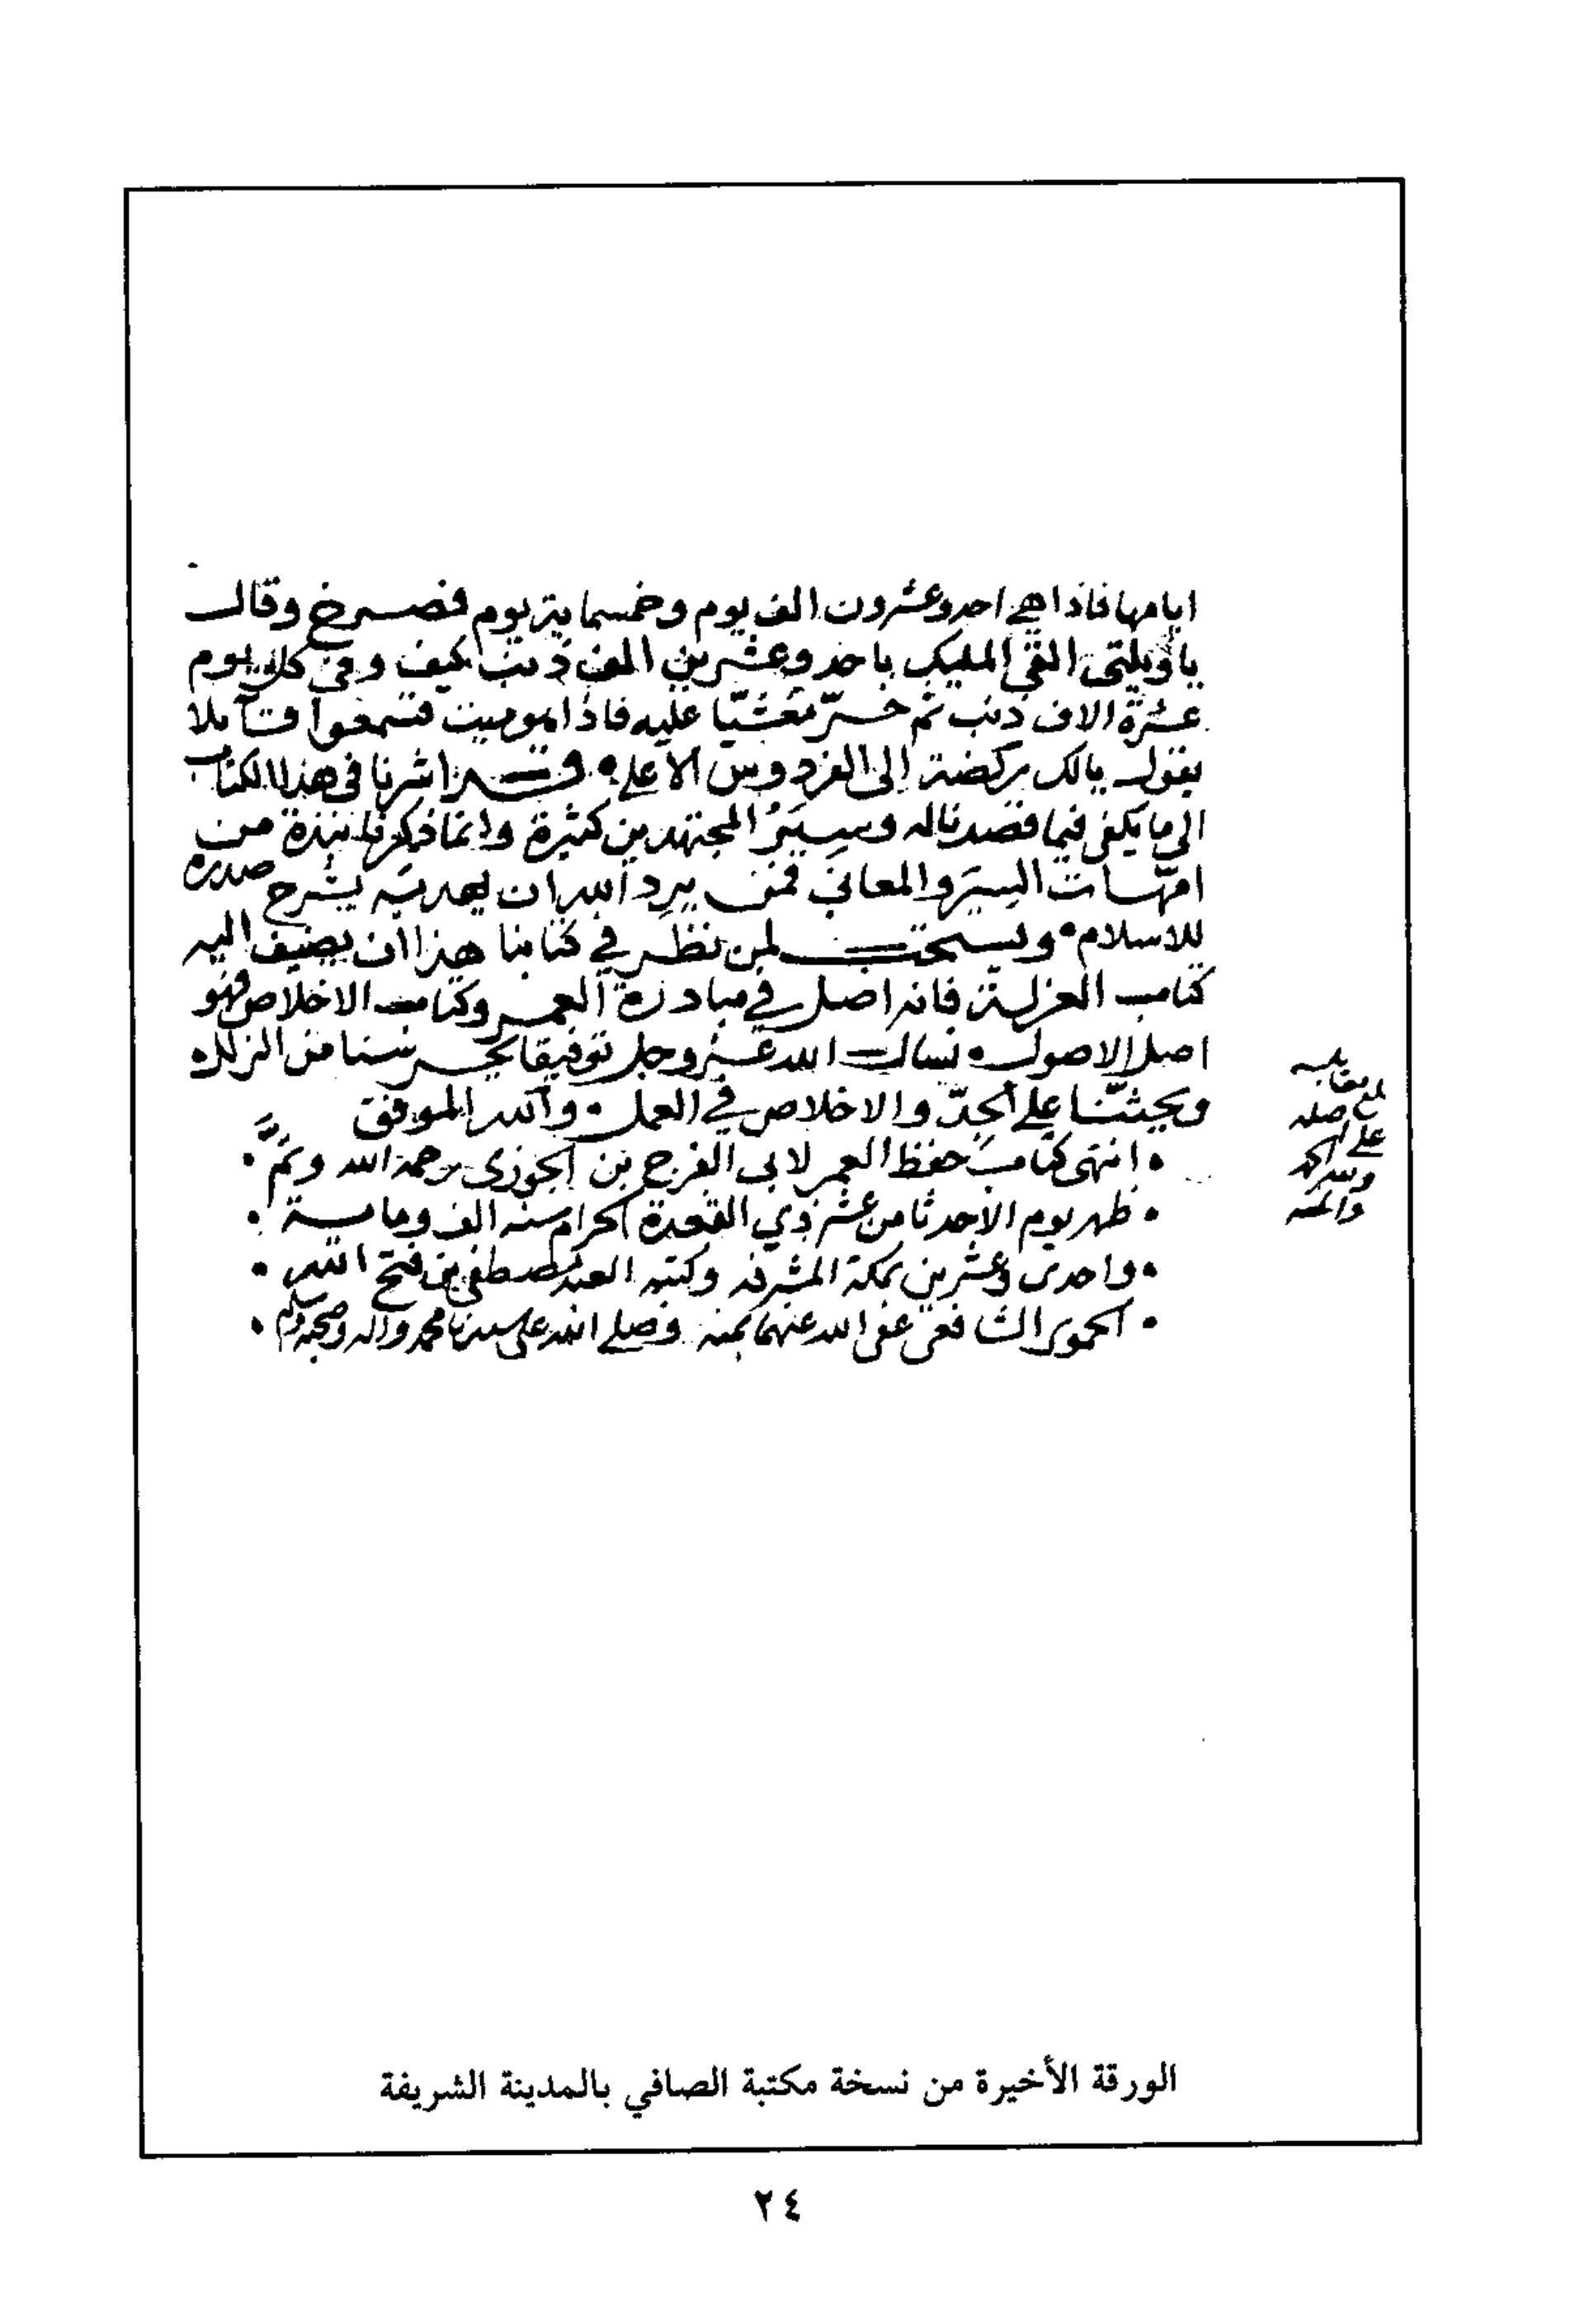 ايامها فاذا هي احد وعشرون الف يوم وخمسماية يوم فصرخ وقال
ياويلتى القي المليك باحد وعشرين الف ذنب كيف وفي كل يوم
عشرة الاف ذنب ثم خرّ مغشيّا عليه فاذا هو ميت فسمعوا قآئلا
يقول يالك ركضة إلى الفردوس الاعلى • وقد اشرنا في هذا الكتاب
الي ما يكفي فيما قصدنا له وسِيَرُ المجتهدين كثيرة وانما ذكرنا نبذة من
امّهات السِيَر والمعاني فمن يرد الله ان يهديَه يشرح صدره
للاسلام • ويستحب لمن نظر في كتابنا هذا أن يضيف اليه
كتاب العزلة فانه اصل في مبادرة العمر وكتاب الاخلاص فهو
اصل الاصول • نسال الله عز وجل توفيقا يحرسنا من الزلل •
ويحثّنا على الجدّ والاخلاص في العمل • والله الموفق
• انتهى كتاب حفظ العمر لابي الفرج بن الجوزي رحمه الله وتمَّ •
• ظهر يوم الاحد ثامن عشر ذي القعدة الحرام سنه الف وماية •
• واحدى وعشرين بمكة المشرفه وكتبه العبد مصطفى بن فتح الله •
• الحموي الشافعي عفى الله عنهما بمنه وصلى الله على سيدنا محمد واله وصحبه وسلم •
بلغ مقابله
على اصله
ولله الحمد
والمنه
الورقة الأخيرة من نسخة مكتبة الصافي بالمدينة الشريفة
٢٤